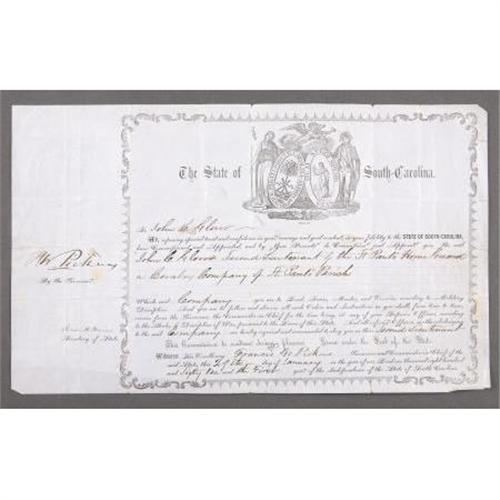 The State of South-Carolina.
To John C. Glover
We, reposing special trust and confidence in your courage and good conduct, in your fidelity to the STATE OF SOUTH-CAROLINA,
have Commissioned and Appointed, and by these Presents do Commission and Appoint you the said
John C. Glover Second Lieutenant of the St Pauls Home Guard
a Cavalry Company of St Pauls Parish
Which said Company you are to Lead, Train, Muster and Exercise according to Military
Discipline. And you are to follow and observe such Orders and Instructions as you shall from time to time
receive from the Governor and Commander-in-Chief for the time being, or any of your Superior Officers, according
to the Rules and Discipline of War, pursuant to the Laws of this State. And all Inferior Officers and
to the said Company are to obey you as their Second Lieutenant
This Commission to continue during pleasure. Given under the Seal of the State.
Witness His Excellency Francis W. Pickens Governor and Commander-in-Chief of the
said State, this day of January in the year of our Lord one thousand eight hundred
and Sixty One and the First year of the Independence of the State of South Carolina
W Pickens
By the Governor.
Secretary of State